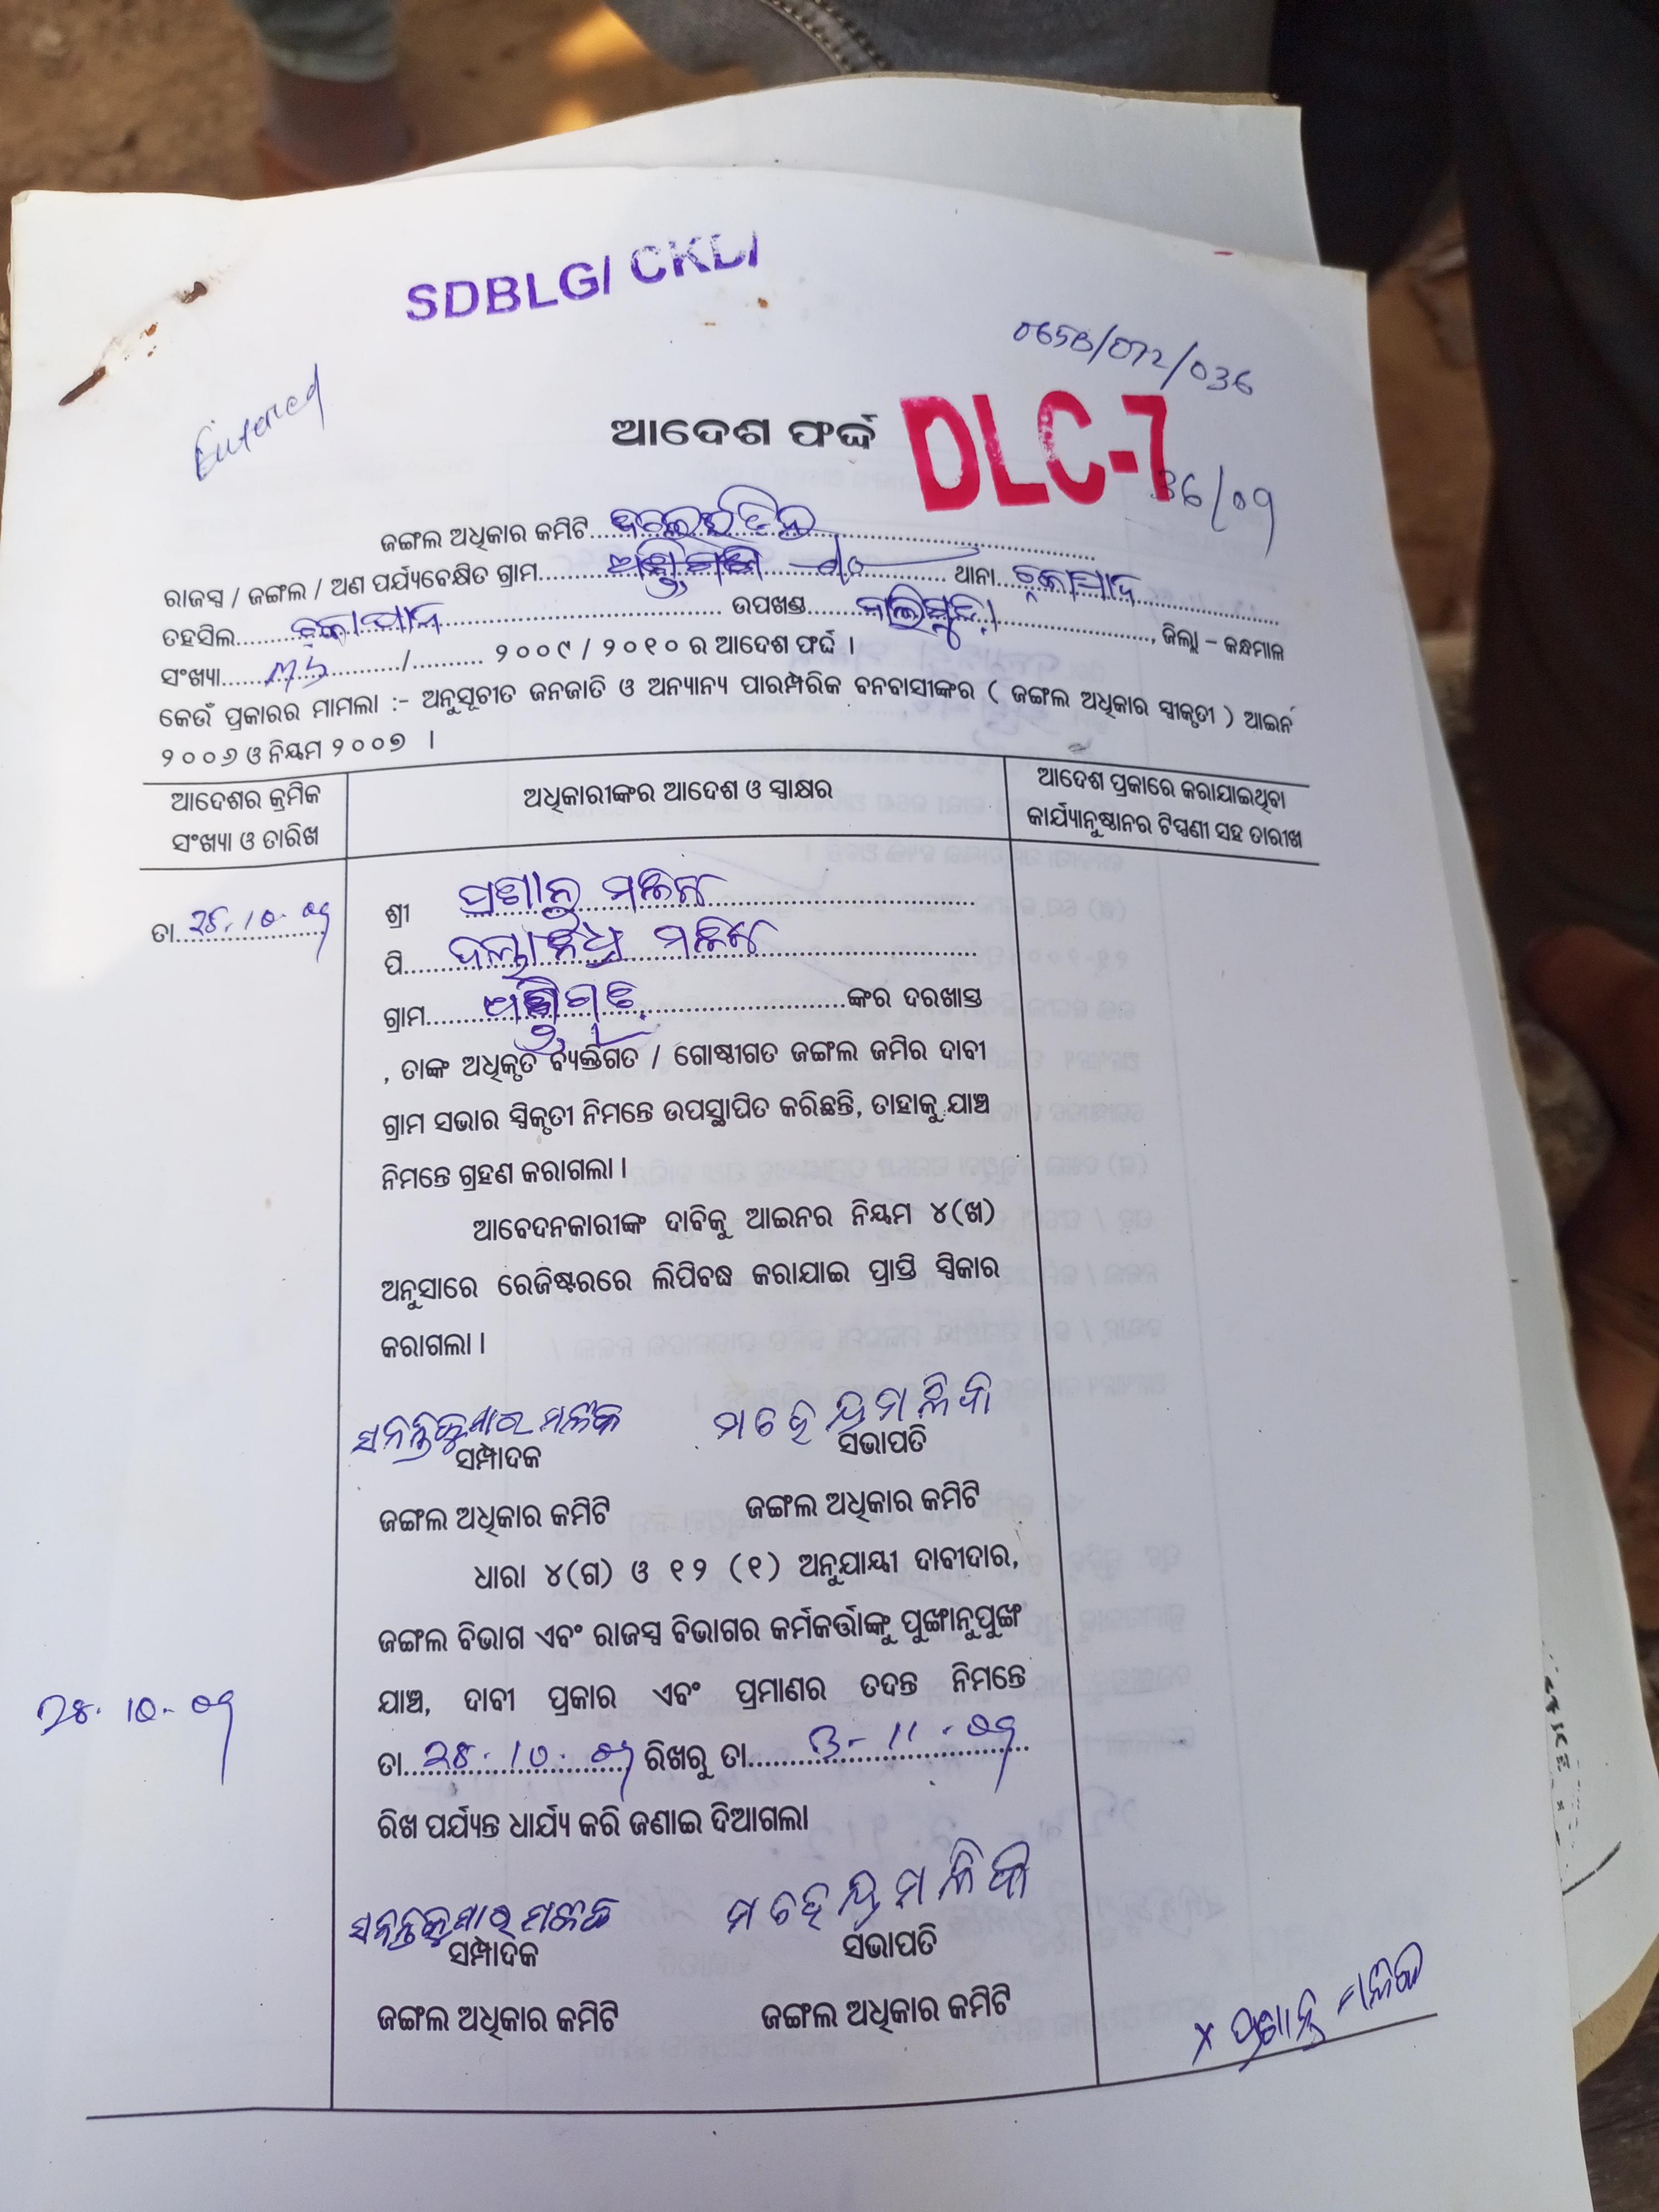 SDBLG/ CKD/
065B/072/036
Entered
ଆଦେଶ ଫର୍ଦ୍ଦ
DLC-7
36/09
ଜଙ୍ଗଲ ଅଧିକାର କମିଟି
ରାଜସ୍ୱ / ଜଙ୍ଗଲ / ଅଣ ପର୍ଯ୍ୟବେକ୍ଷିତ ଗ୍ରାମ.......... ଥାନା..........
ତହସିଲ.......... ଉପଖଣ୍ଡ.......... , ଜିଲ୍ଲା – କନ୍ଧମାଳ
ସଂଖ୍ୟା........../.......... ୨୦୦୯ / ୨୦୧୦ ର ଆଦେଶ ଫର୍ଦ୍ଦ ।
କେଉଁ ପ୍ରକାରର ମାମଲା :- ଅନୁସୂଚୀତ ଜନଜାତି ଓ ଅନ୍ୟାନ୍ୟ ପାରମ୍ପରିକ ବନବାସୀଙ୍କର ( ଜଙ୍ଗଲ ଅଧିକାର ସ୍ୱୀକୃତୀ ) ଆଇନ
୨୦୦୬ ଓ ନିୟମ ୨୦୦୭ ।
ଆଦେଶର କ୍ରମିକ
ସଂଖ୍ୟା ଓ ତାରିଖ
ଅଧିକାରୀଙ୍କର ଆଦେଶ ଓ ସ୍ୱାକ୍ଷର
ଆଦେଶ ପ୍ରକାରେ କରାଯାଇଥିବା
କାର୍ଯ୍ୟାନୁଷ୍ଠାନର ଟିପ୍ପଣୀ ସହ ତାରୀଖ
ତା. 28.10.09
ଶ୍ରୀ ପ୍ରଶାନ୍ତ ମଲ୍ଲିକ
ପି.......... ମଲ୍ଲିକ
ଗ୍ରାମ..........ଙ୍କର ଦରଖାସ୍ତ
, ତାଙ୍କ ଅଧିକୃତ ବ୍ୟକ୍ତିଗତ / ଗୋଷ୍ଠୀଗତ ଜଙ୍ଗଲ ଜମିର ଦାବୀ
ଗ୍ରାମ ସଭାର ସ୍ୱିକୃତୀ ନିମନ୍ତେ ଉପସ୍ଥାପିତ କରିଛନ୍ତି, ତାହାକୁ ଯାଞ୍ଚ
ନିମନ୍ତେ ଗ୍ରହଣ କରାଗଲା ।
ଆବେଦନକାରୀଙ୍କ ଦାବିକୁ ଆଇନର ନିୟମ ୪(ଖ)
ଅନୁସାରେ ରେଜିଷ୍ଟରରେ ଲିପିବଦ୍ଧ କରାଯାଇ ପ୍ରାପ୍ତି ସ୍ୱିକାର
କରାଗଲା ।
ସମ୍ପାଦକ ସଭାପତି
ଜଙ୍ଗଲ ଅଧିକାର କମିଟି ଜଙ୍ଗଲ ଅଧିକାର କମିଟି
ଧାରା ୪(ଗ) ଓ ୧୨ (୧) ଅନୁଯାୟୀ ଦାବୀଦାର,
ଜଙ୍ଗଲ ବିଭାଗ ଏବଂ ରାଜସ୍ୱ ବିଭାଗର କର୍ମକର୍ତ୍ତାଙ୍କୁ ପୁଙ୍ଖାନୁପୁଙ୍ଖ
ଯାଞ୍ଚ, ଦାବୀ ପ୍ରକାର ଏବଂ ପ୍ରମାଣର ତଦନ୍ତ ନିମନ୍ତେ
28.10.09
ତା. 28.10.09 ରିଖରୁ ତା. 3-11-09
ରିଖ ପର୍ଯ୍ୟନ୍ତ ଧାର୍ଯ୍ୟ କରି ଜଣାଇ ଦିଆଗଲା
ସମ୍ପାଦକ ସଭାପତି
ଜଙ୍ଗଲ ଅଧିକାର କମିଟି ଜଙ୍ଗଲ ଅଧିକାର କମିଟି
x ପ୍ରଶାନ୍ତ ମଲ୍ଲିକ